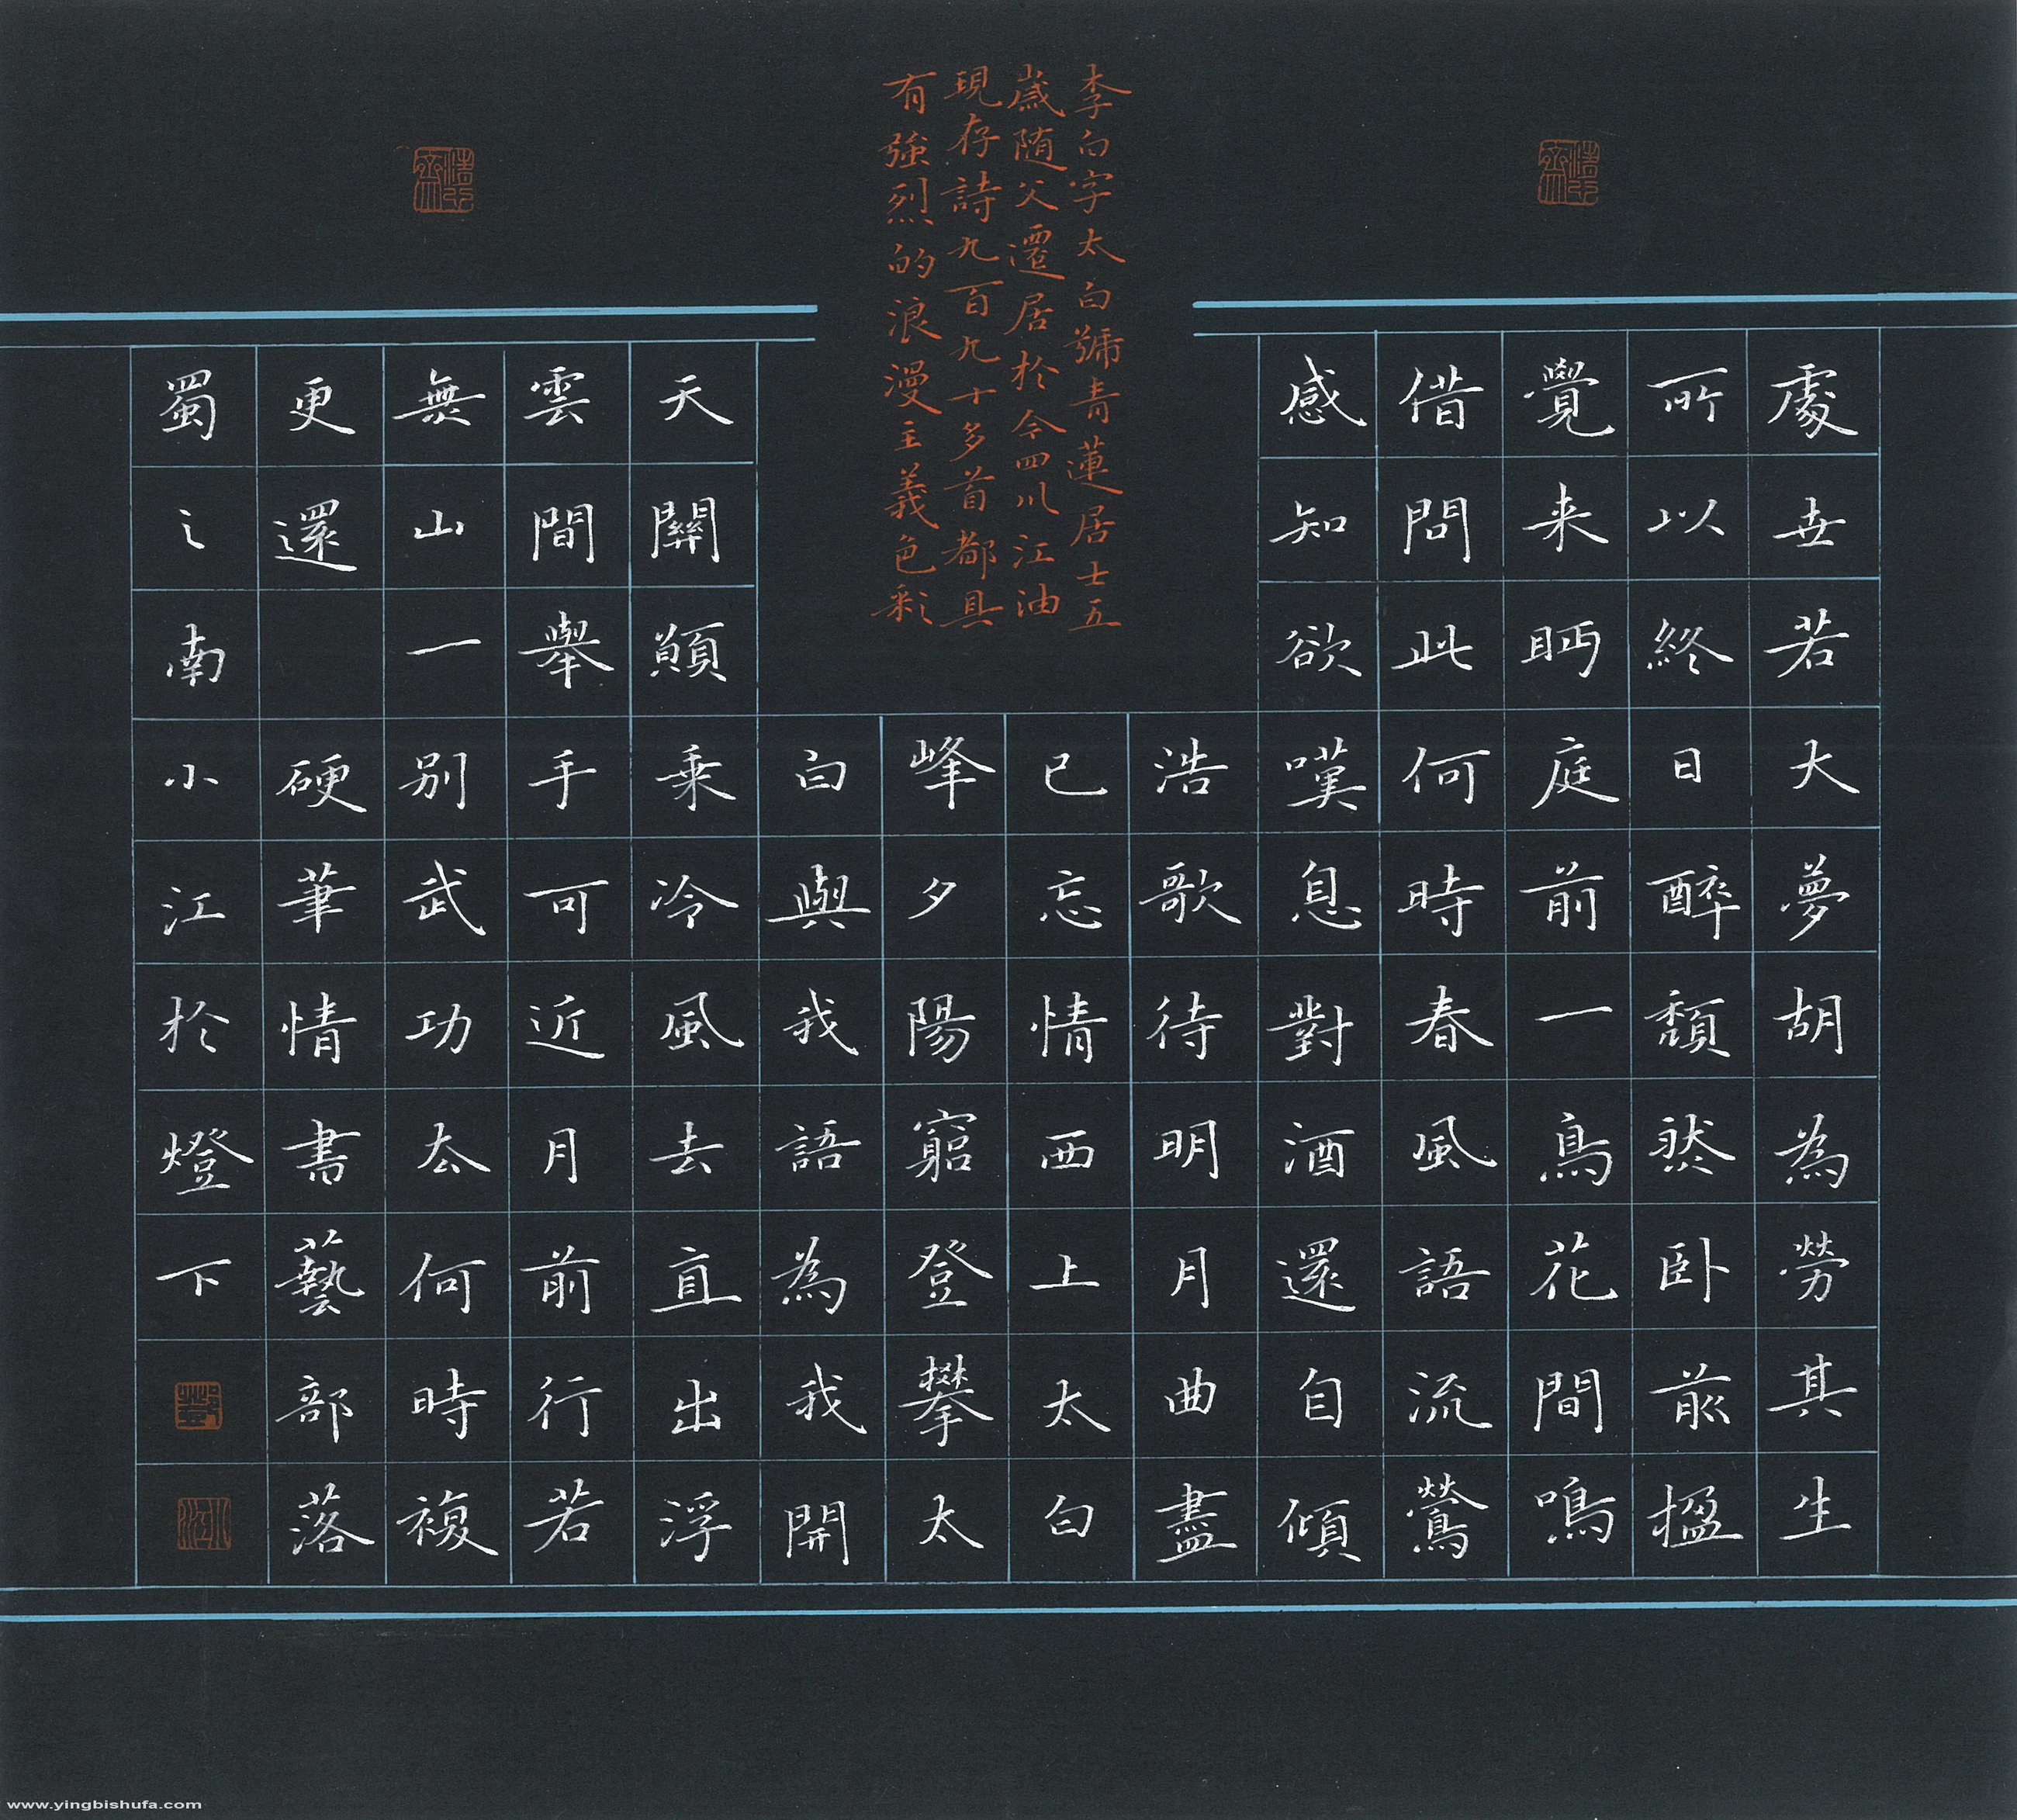 李白字太白號青蓮居士五
歲随父遷居於今四川江油
現存詩九百九十多首都具
有強烈的浪漫主義色彩
處世若大夢胡為勞其生
所以終日醉頹然卧前楹
覺来眄庭前一鳥花間鳴
借問此何時春風語流鶯
感知欲嘆息對酒還自傾
浩歌待明月曲盡
已忘情西上太白
峰夕陽窮登攀太
白與我語為我開
天關願乗冷風去直出浮
雲間舉手可近月前行若
無山一別武功厺何時複
更還 硬筆情書藝部落
蜀之南小江於燈下
www.yingbishufa.com